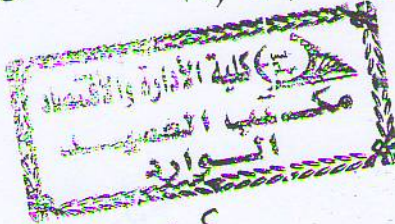 كلية الأدارة والأقتصاد
مكتب العميد
الوارد